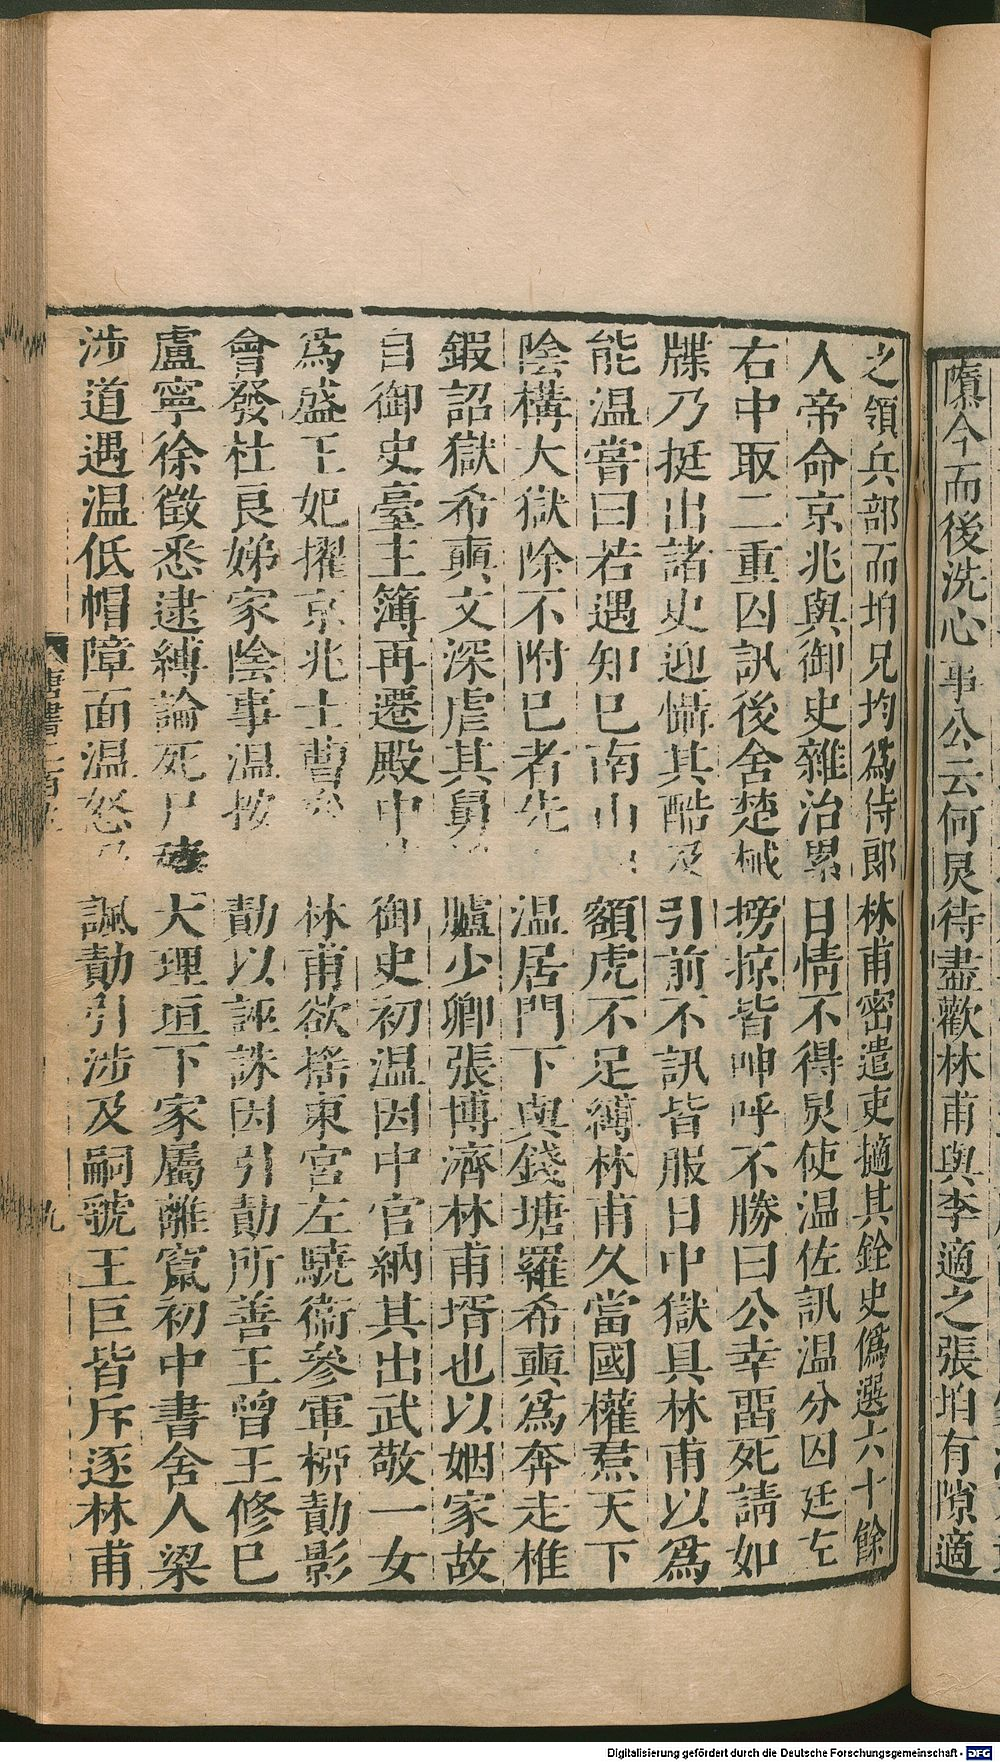 隳今而後洗心事公云何炅待盡歡林甫與李適之張垍有隙適
之領兵部而垍兄均爲侍郎林甫密遣吏擿其銓史僞選六十餘
人帝命京兆與御史雜治累日情不得炅使溫佐訊溫分囚廷左
右中取二重囚訊後舍楚械搒掠皆呻呼不勝曰公幸畱死請如
牒乃挺出諸史迎懾其酷及引前不訊皆服日中獄具林甫以爲
能溫嘗曰若遇知已南山 額虎不足縛林甫久當國權焄天下
陰構大獄除不附已者先 溫居門下與錢塘羅希奭爲奔走椎
鍜詔獄希奭文深虐其舅 臚少卿張博濟林甫壻也以姻家故
自御史臺主簿再遷殿中 御史初溫因中官納其出武敬一女
爲盛王妃擢京兆士曹 林甫欲搖東宮左驍衞參軍栁勣影
會發杜良娣家陰事溫按 勣以誣誅因引勣所善王曾王修已
盧寧徐徵悉逮縛論死尸 大理垣下家屬離竄初中書舍人梁
涉道遇溫低帽障面溫怒 諷勣引涉及嗣虢王巨皆斥逐林甫
唐書二百
九
Digitalisierung gefördert durch die Deutsche Forschungsgemeinschaft - DFG